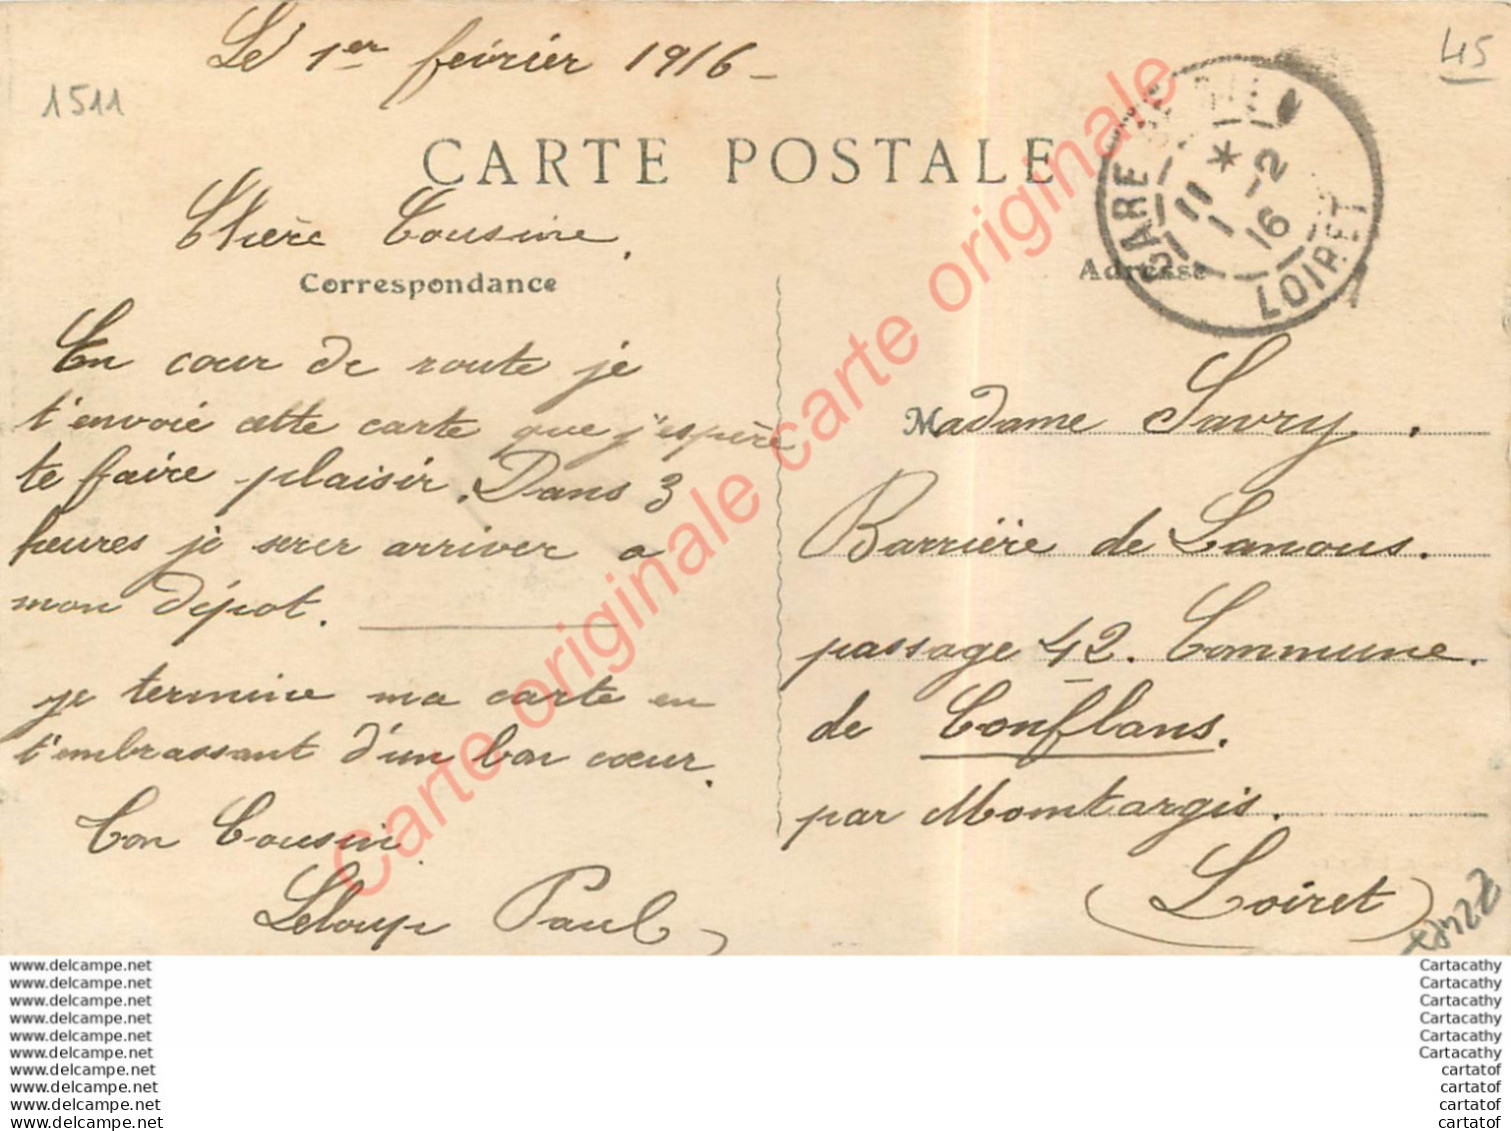 Le 1er feivrier 1916 -
45
1511
CARTE POSTALE
GARE DE
LOIRET
11 * 1 -2 16
Chère Cousine.
Correspondance
Adresse
En cour de route je
t'envoie cette carte que j'espère
te faire plaisir. Dans 3
heures je serer arriver a
mon dépot.
je termine ma carte en
t'embrassant d'un bon cœur.
Ton Cousin
Leloup Paul
Madame Savry.
Barrière de Lanous.
passage 42. Commune.
de Conflans.
par Momtargis.
(Loiret)
Carte originale carte originale carte originale
www.delcampe.net
www.delcampe.net
www.delcampe.net
www.delcampe.net
www.delcampe.net
www.delcampe.net
www.delcampe.net
www.delcampe.net
www.delcampe.net
www.delcampe.net
Cartacathy
Cartacathy
Cartacathy
Cartacathy
Cartacathy
Cartacathy
cartatof
cartatof
cartatof
cartatof